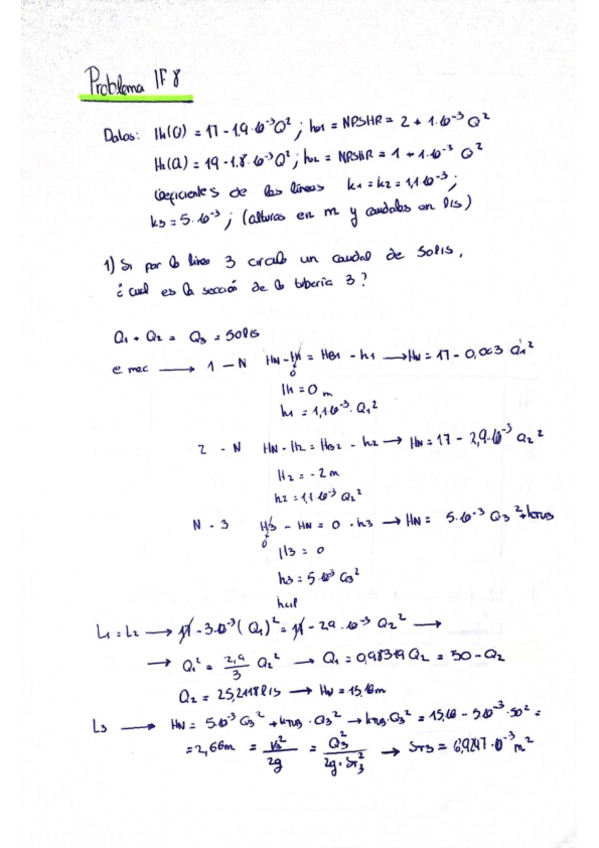 Problema IF8
Datos: H1(Q) = 17 - 1,9·10⁻³Q² ; h01 = NPSHR = 2 + 1·10⁻³ Q²
H2(Q) = 19 - 1.8·10⁻³Q² ; h02 = NPSHR = 1 + 1·10⁻³ Q²
Coeficientes de las líneas k1 = k2 = 1,1·10⁻³ ;
k3 = 5·10⁻³ ; (alturas en m y caudales en l/s)
1) Si por la línea 3 circula un caudal de 50 l/s,
¿cuál es la sección de la tubería 3?
Q1 + Q2 = Q3 = 50 l/s
e mec → 1 - N HN - H1 = HB1 - h1 → HN = 17 - 0,003 Q1²
0
H1 = 0 m
h1 = 1,1·10⁻³ · Q1²
2 - N HN - H2 = HB2 - h2 → HN = 17 - 2,9·10⁻³ Q2²
H2 = -2 m
h2 = 1,1·10⁻³ Q2²
N - 3 H3 - HN = 0 - h3 → HN = 5·10⁻³ Q3²
0
H3 = 0
h3 = 5·10⁻³ Q3²
L1 = L2 → 17 - 3·10⁻³ (Q1)² = 17 - 2,9·10⁻³ Q2² →
→ Q1² = 2,9/3 Q2² → Q1 = 0,98319 Q2 = 50 - Q2
Q2 = 25,2118 l/s → HN = 15,16 m
L3 → HN = 5·10⁻³ Q3² + · Q3² → · Q3² = 15,16 - 5·10⁻³ · 50² =
= 2,66m = v3²/2g = Q3²/2g·ST3² → ST3 = 6,9247·10⁻³ m²